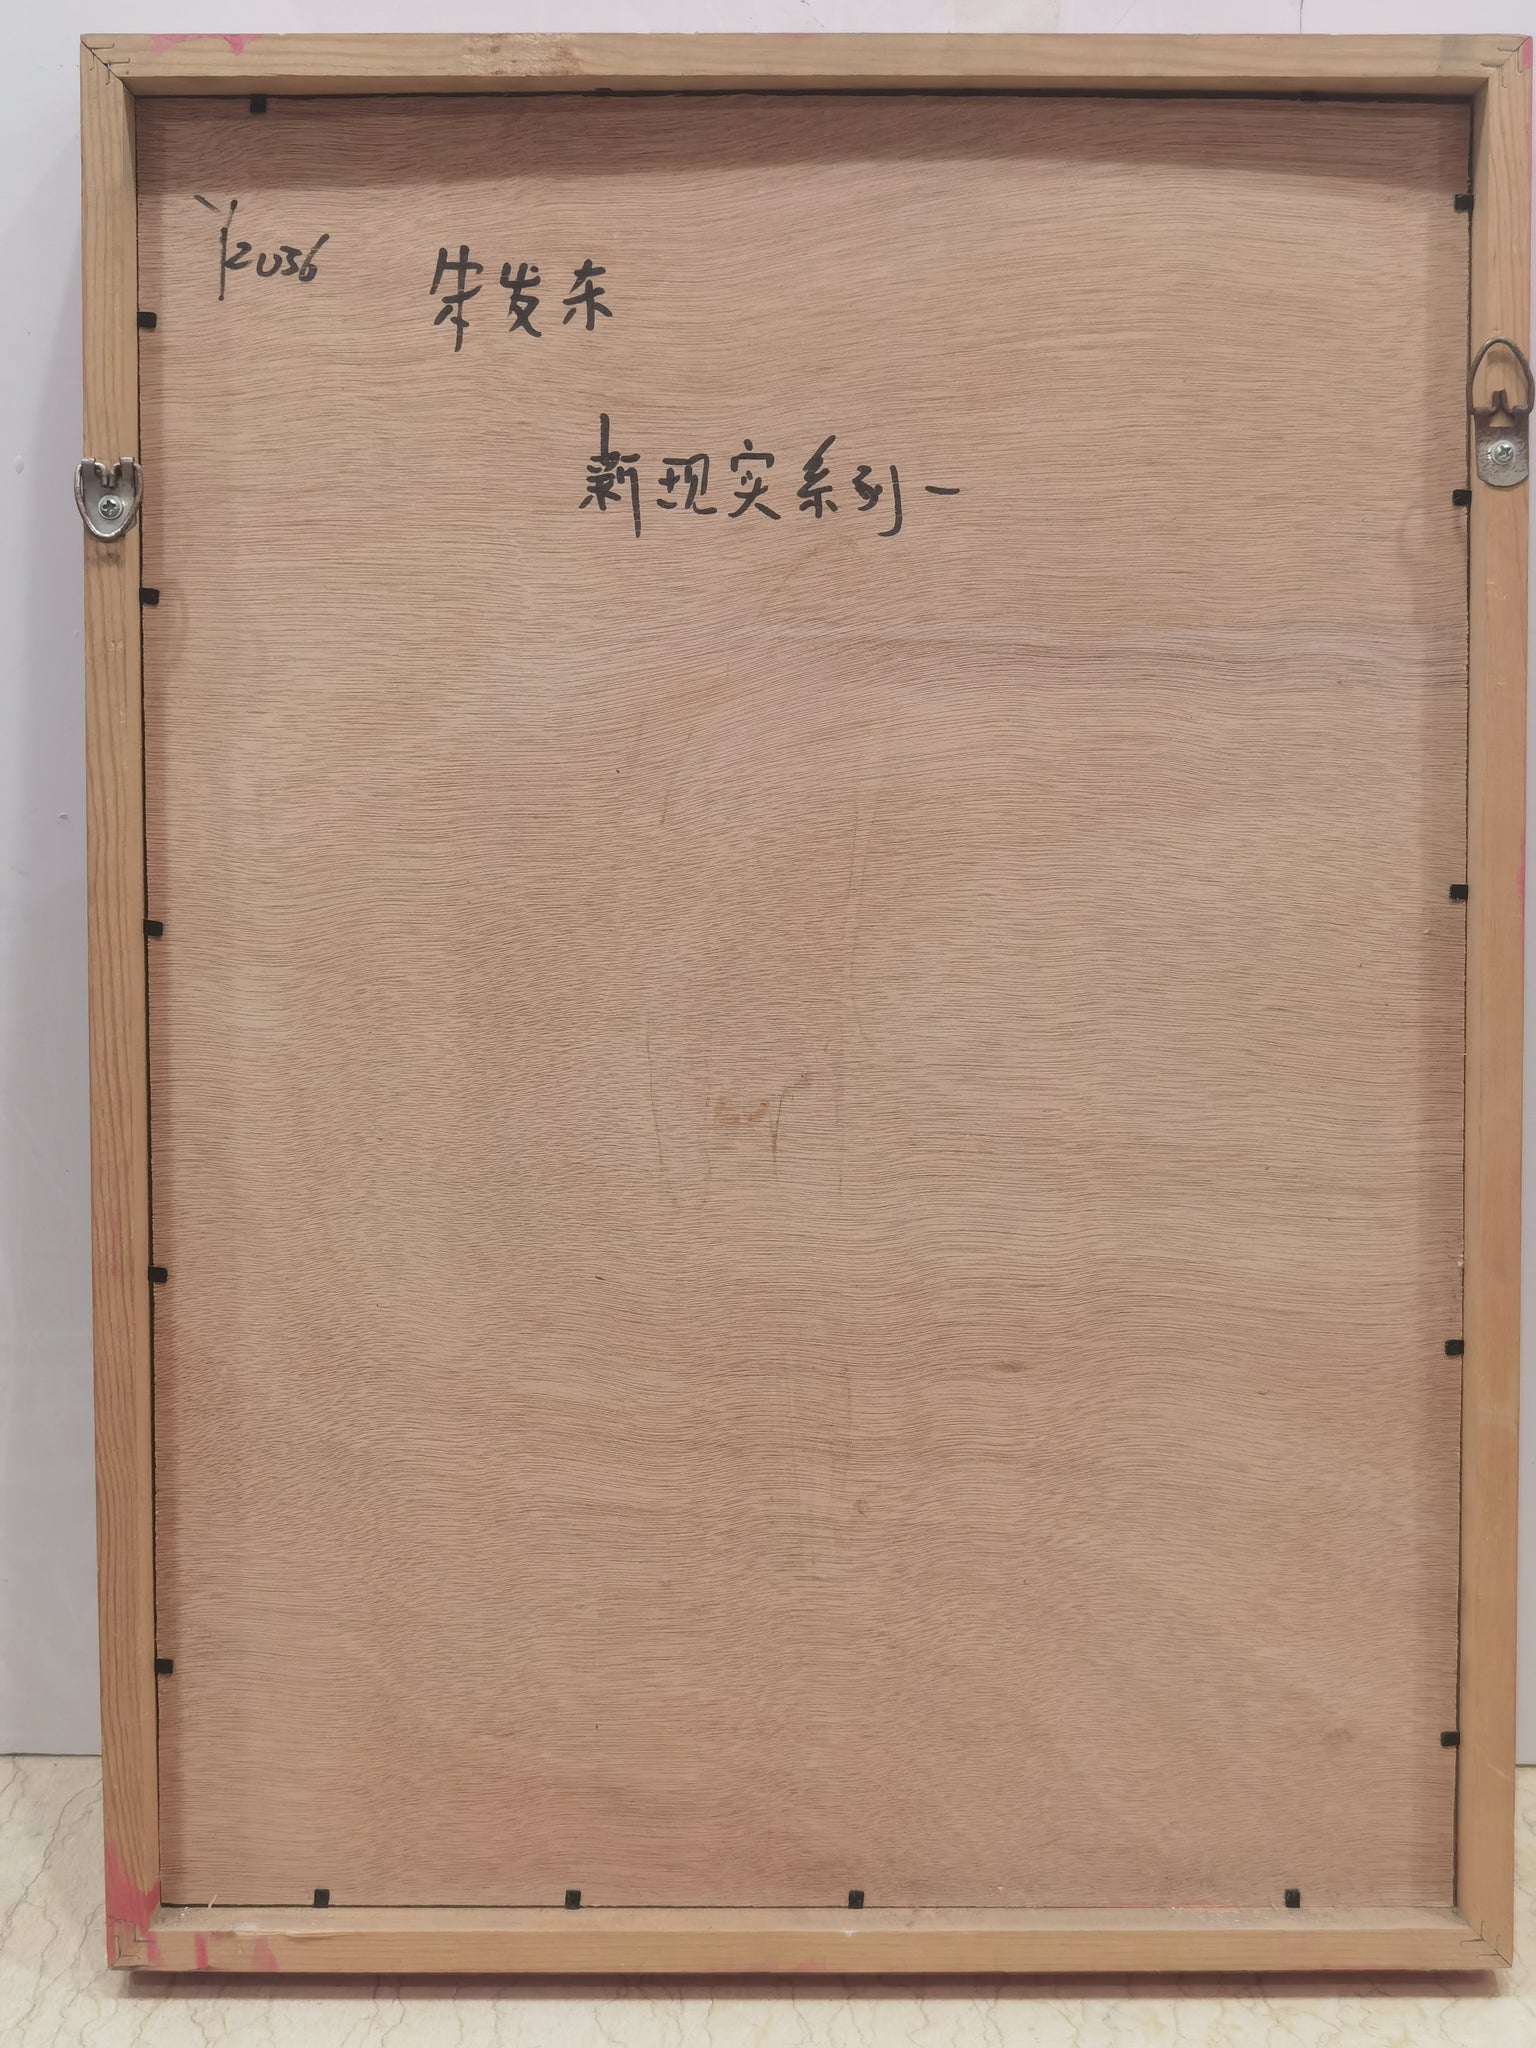 朱发东
新现实系列一